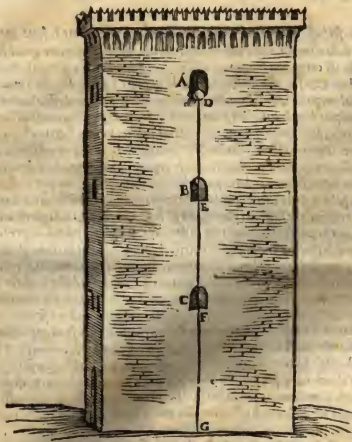 A
D
B
E
C
F
G